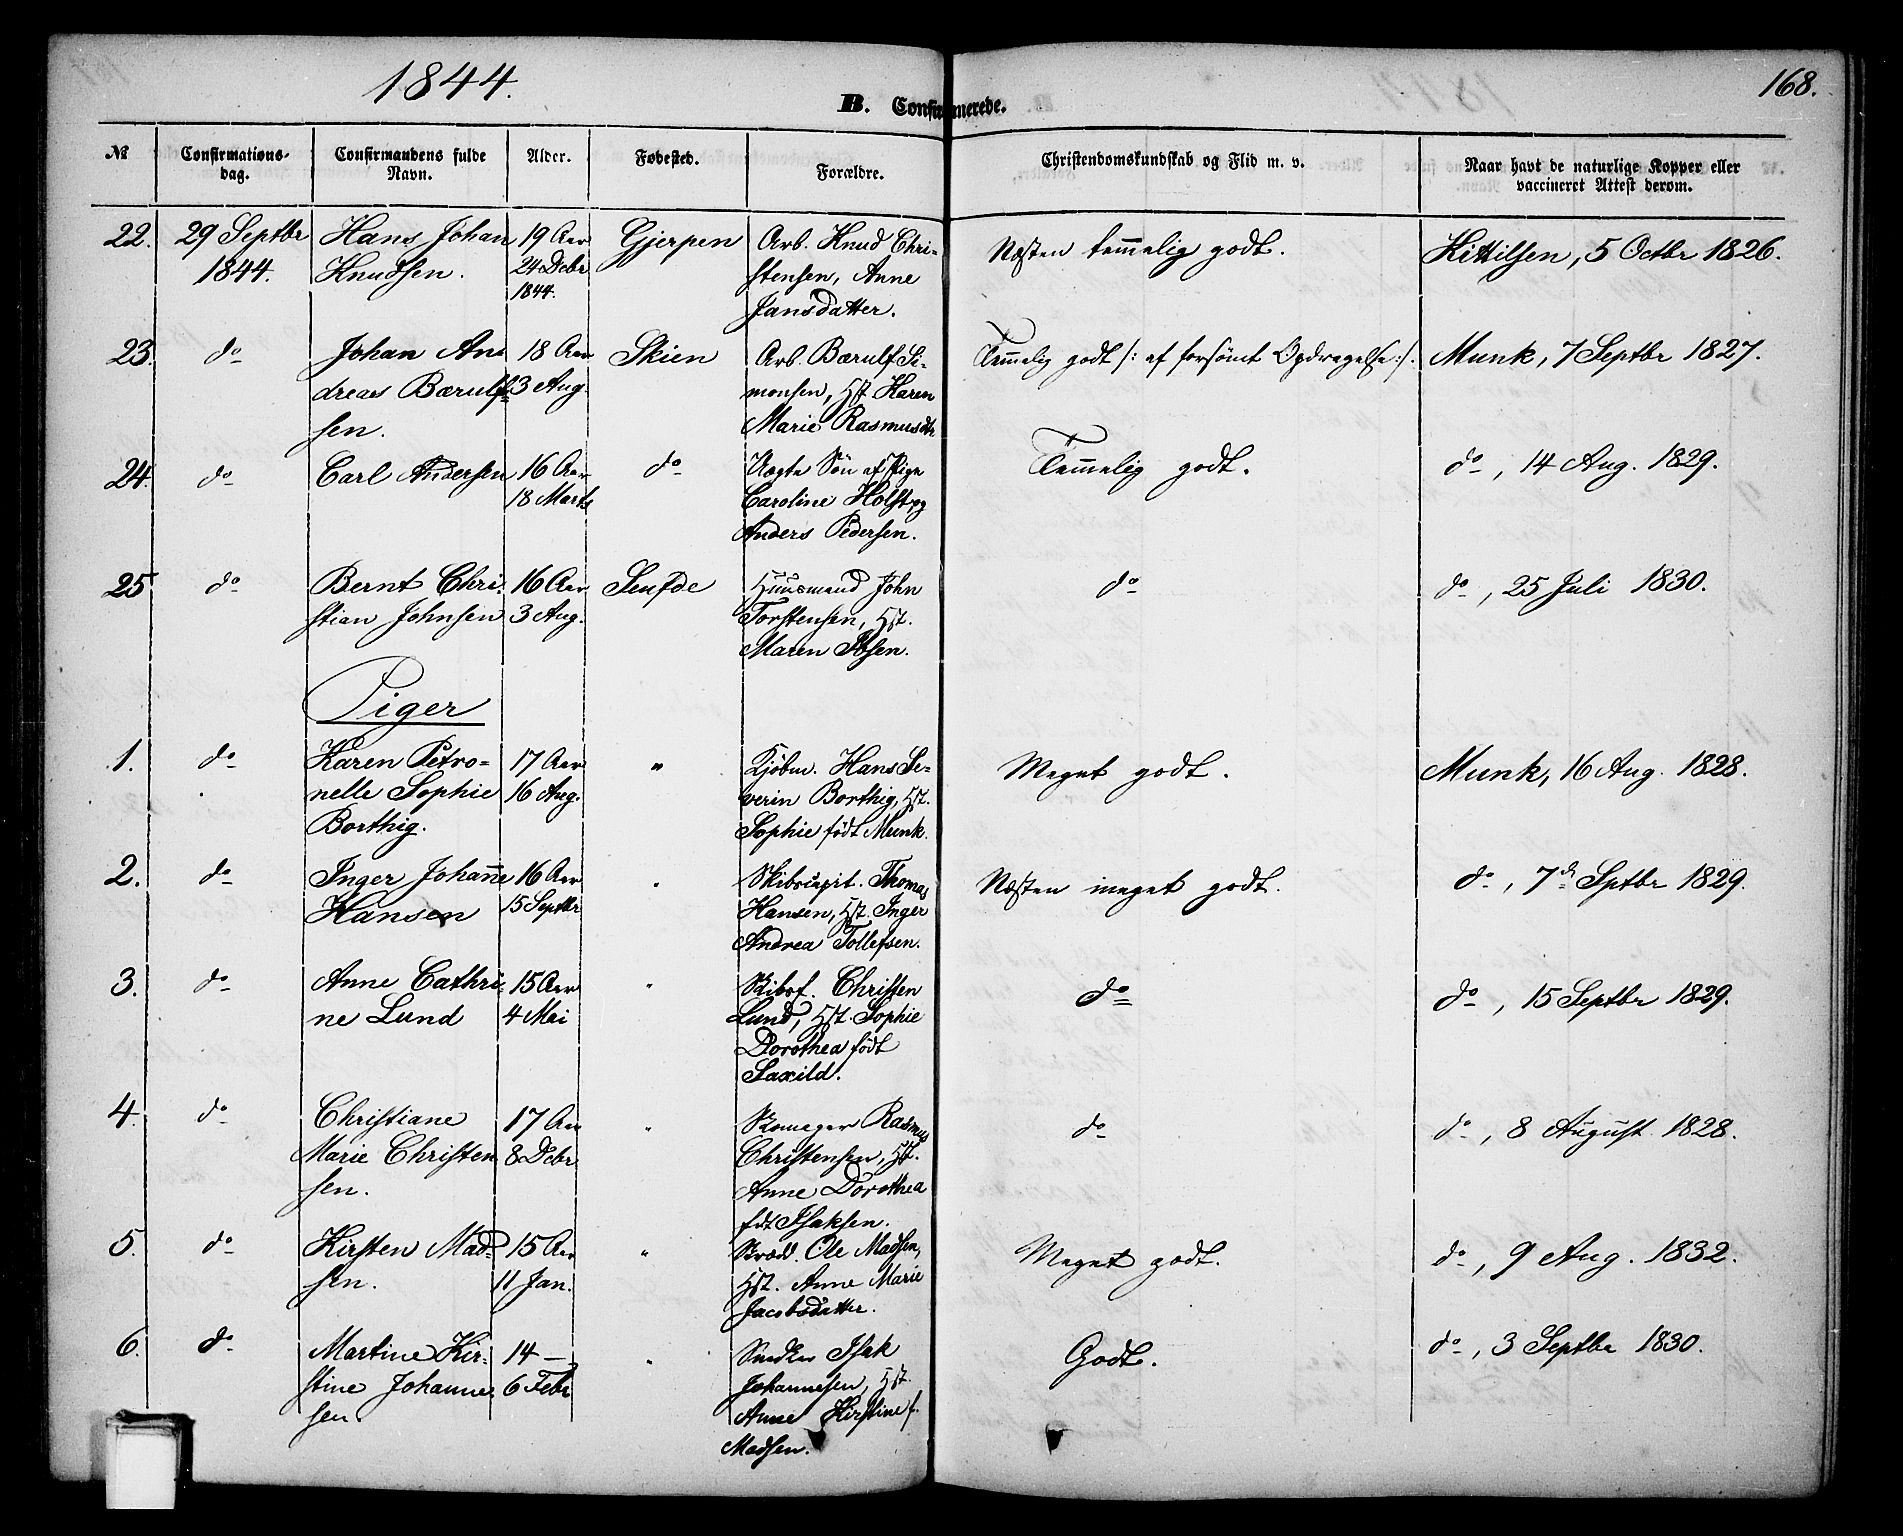 1844.
168.
B. Confirmerede.
№
Confirmations-
dag.
Confirmandens fulde
Navn.
Alder.
Fødested.
Forældre.
Christendomskundskab og Flid m. v.
Naar havt de naturlige Kopper eller
vaccineret Attest derom.
22. 29 Septbr Hans Johan 19 Aar Gjerpen Arb. Knud Chri- Næsten temmelig godt. Kittilsen, 5 Octbr 1826.
1844. Knudsen. 24 Decbr stensen, Anne
1844. Jansdatter.
23. do Johan An- 18 Aar Skien Arb. Bærulf Si- Temmelig godt /: af forsømt Opdragelse :/. Munk, 7 Septbr 1827.
dreas Bærulf- 3 Aug. monsen, Hst. Karen
sen. Marie Rasmusdtr
24. do Carl Andersen 16 Aar do Uægte Søn af Pige Temmelig godt. do, 14 Aug. 1829.
18 Marts Caroline Holst og
Anders Pedersen.
25 do Bernt Chri- 16 Aar Huusmand John do do, 25 Juli 1830.
stian Johnsen 3 Aug. Torstensen, Hst.
Maren Ibsen.
Piger
1. do Karen Petro- 17 Aar " Kjøbm. Hans Se- Meget godt. Munk, 16 Aug. 1828.
nelle Sophie 16 Aug. verin Borthig, Hst.
Borthig. Sophie født Munk.
2. do Inger Johanne 16 Aar " Thomas Næsten meget godt. do, 7de Sptbr 1829.
Hansen 15 Septbr Hansen, Hst. Inger
Andrea Tollefsen.
3. do Anne Cathri- 15 Aar " Skibsf. Christen do do, 15 Septbr 1829.
ne Lund 4 Mai Lund, Hst. Sophie
Dorothea født
Saxild.
4. do Christiane 17 Aar " Skomager Rasmus do do, 8 August 1828.
Marie Christen- 8 Decbr Christensen, Hst.
sen. Anne Dorothea
fdt Isaksen.
5. do Kirsten Mad- 15 Aar " Skrædd. Ole Madsen, Meget godt. do, 9 Aug. 1832.
sen. 11 Jan. Hst. Anne Marie
Jacobsdatter.
6. do Martine Kir- 14 — " Snedker Isak Godt. do, 3 Septbr 1830.
stine Johanne- 6 Febr Johannesen, Hst.
sen. Anne Kirstine f.
Madsen.